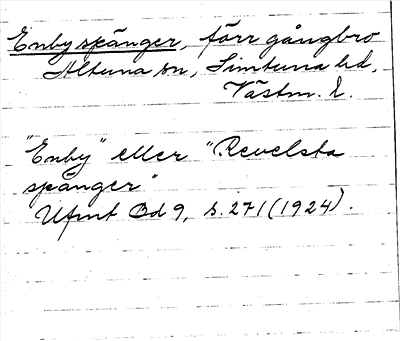 Enby spänger, förr gångbro
Altuna sn, Simtuna hd,
Västm. l.
"Enby" eller "Revelsta
spänger"
Ufmt Bd 9, s. 271 (1924).